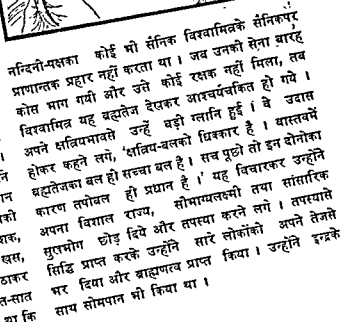 नन्दिनी-पक्षका कोई भी सैनिक विश्वामित्रके सैनिकपर
प्राणान्तक प्रहार नहीं करता था । जब उनकी सेना बारह
कोस भाग गयी और उसे कोई रक्षक नहीं मिला, तब
विश्वामित्र यह ब्रह्मतेज देखकर आश्चर्यचकित हो गये ।
अपने क्षत्रियभावसे उन्हें बड़ी ग्लानि हुई । वे उदास
होकर कहने लगे, 'क्षत्रिय-बलको धिक्कार है । वास्तवमें
ब्रह्मतेजका बल ही सच्चा बल है । सच पूछो तो इन दोनोंका
कारण तपोबल ही प्रधान है ।' यह विचारकर उन्होंने
अपना विशाल राज्य, सौभाग्यलक्ष्मी तथा सांसारिक
सुखभोग छोड़ दिये और तपस्या करने लगे । तपस्यासे
सिद्धि प्राप्त करके उन्होंने सारे लोकोंको अपने तेजसे
भर दिया और ब्राह्मणत्व प्राप्त किया । उन्होंने इन्द्रके
साथ सोमपान भी किया था ।